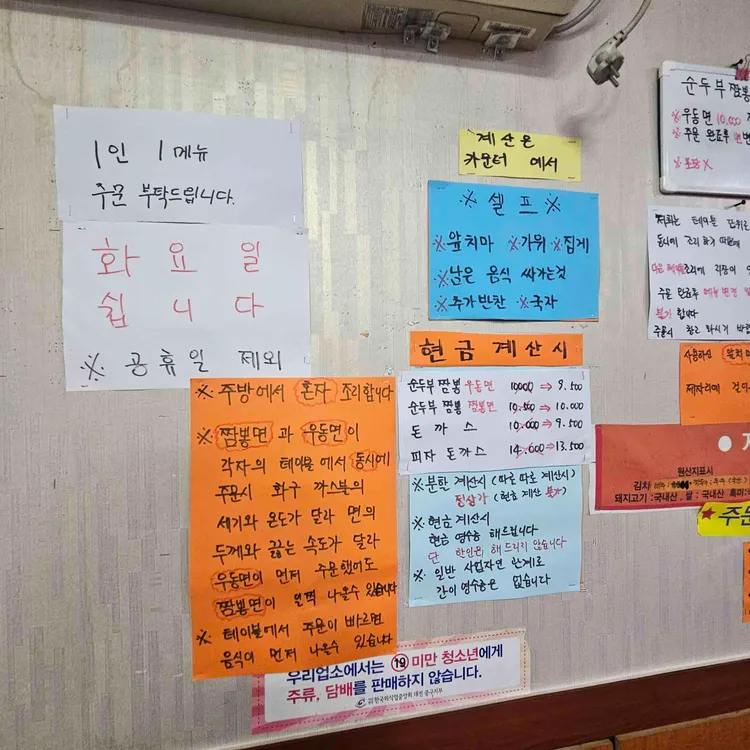 1인 1메뉴
주문 부탁드립니다.
화요일
쉽니다
※ 공휴일 제외
※ 주방에서 혼자 조리합니다
※ 짬뽕면과 우동면이
각자의 테이블에서 동시에
주문시 화구 까스불의
세기와 온도가 달라 면의
두께와 끓는 속도가 달라
우동면이 먼저 주문했어도
짬뽕면이 일찍 나올수 있습니다
※ 테이블에서 주문이 빠르면
음식이 먼저 나올수 있습니다
계산은
카운터 에서
※ 셀프 ※
※앞치마 ※가위 ※집게
※남은 음식 싸가는것
※추가반찬 ※국자
현금계산시
순두부 짬뽕 우동면 10,000 ⇒ 9.500
순두부 짬뽕 짬뽕면 10.500 ⇒ 10.000
돈까스 10.000 ⇒ 9.500
피자 돈까스 14.000 ⇒ 13.500
※분할 계산시 (따로 따로 계산시)
질삼가 (현금 계산 불가)
※현금 계산시
현금 영수증 해드립니다
단 할인은 해드리지 않습니다
※ 일반 사업자면 한계로
간이 영수증은 없습니다
우리업소에서는 19 미만 청소년에게
주류, 담배를 판매하지 않습니다.
한국외식업중앙회 대전 중구지부
순두부 짬뽕
※우동면 10,000
※주문 완료후
※포장X
저희는 테이블 단위로
동시에 조리 하기 때문에
주문 완료후 메뉴 변경
불가 합니다
주문시 참고 하시기
사용하신 앞치마
제자리에
원산지표시
김치
돼지고기 : 국내산, 쌀 : 국내산
★주문